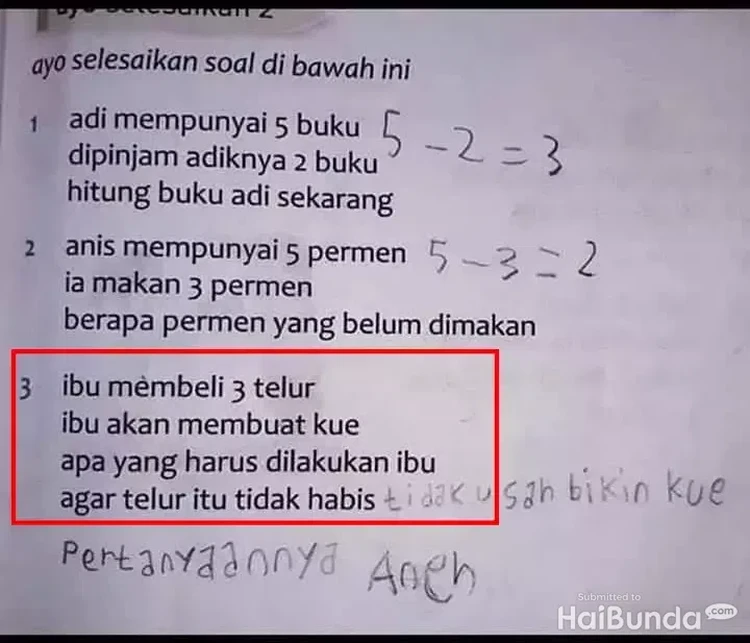 ayo selesaikan 2
ayo selesaikan soal di bawah ini
1 adi mempunyai 5 buku 5 - 2 = 3
dipinjam adiknya 2 buku
hitung buku adi sekarang
2 anis mempunyai 5 permen 5 - 3 = 2
ia makan 3 permen
berapa permen yang belum dimakan
3 ibu membeli 3 telur
ibu akan membuat kue
apa yang harus dilakukan ibu
agar telur itu tidak habis tidak usah bikin kue
Pertanyaannya Aneh
Submitted to
HaiBunda.com